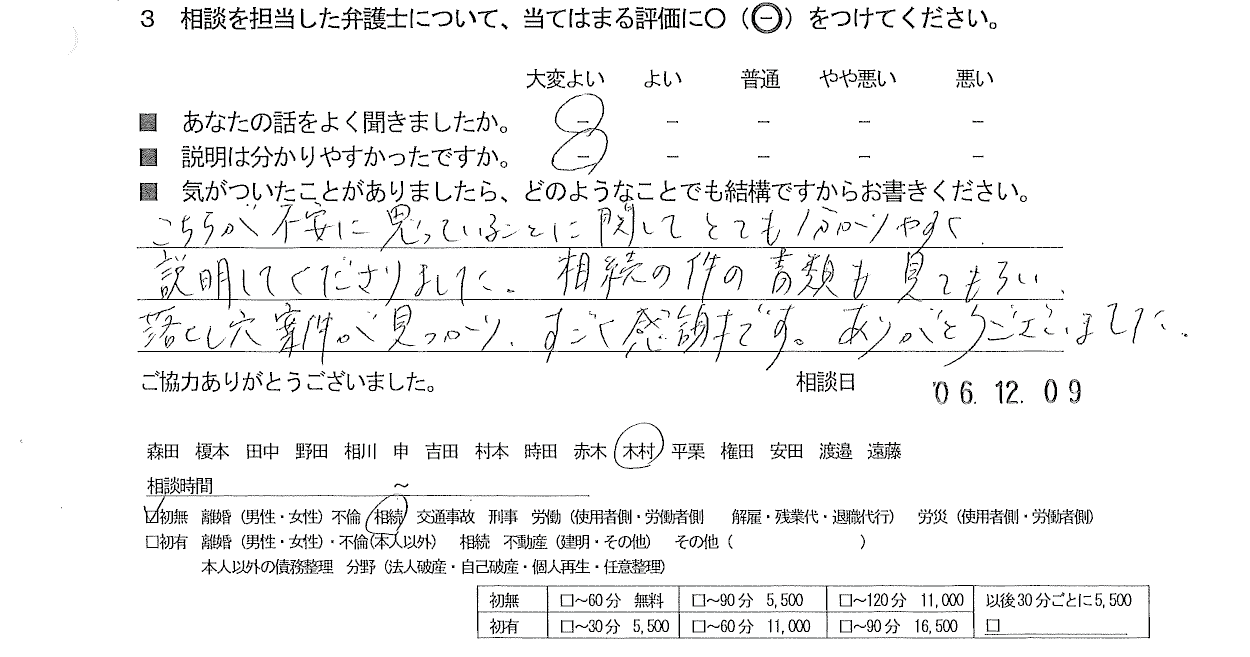 3 相談を担当した弁護士について、当てはまる評価に○（㊀）をつけてください。
大変よい よい 普通 やや悪い 悪い
■ あなたの話をよく聞きましたか。 − − − − −
■ 説明は分かりやすかったですか。 − − − − −
■ 気がついたことがありましたら、どのようなことでも結構ですからお書きください。
こちらが不安に思っていることに関してとても分かりやすく
説明してくださりました。相続の件の書類も見てもらい、
落とし穴案件が見つかり、すごく感謝です。ありがとうございました。
ご協力ありがとうございました。 相談日 '06.12.09
森田 榎本 田中 野田 相川 申 吉田 村本 時田 赤木 木村 平栗 権田 安田 渡邉 遠藤
相談時間 ～
☑初無 離婚（男性・女性）不倫 相続 交通事故 刑事 労働（使用者側・労働者側 解雇・残業代・退職代行） 労災（使用者側・労働者側）
□初有 離婚（男性・女性）・不倫(本人以外） 相続 不動産（建明・その他） その他（ ）
本人以外の債務整理 分野（法人破産・自己破産・個人再生・任意整理）
初無 □～60分 無料 □～90分 5,500 □～120分 11,000 以後30分ごとに5,500
初有 □～30分 5,500 □～60分 11,000 □～90分 16,500 □